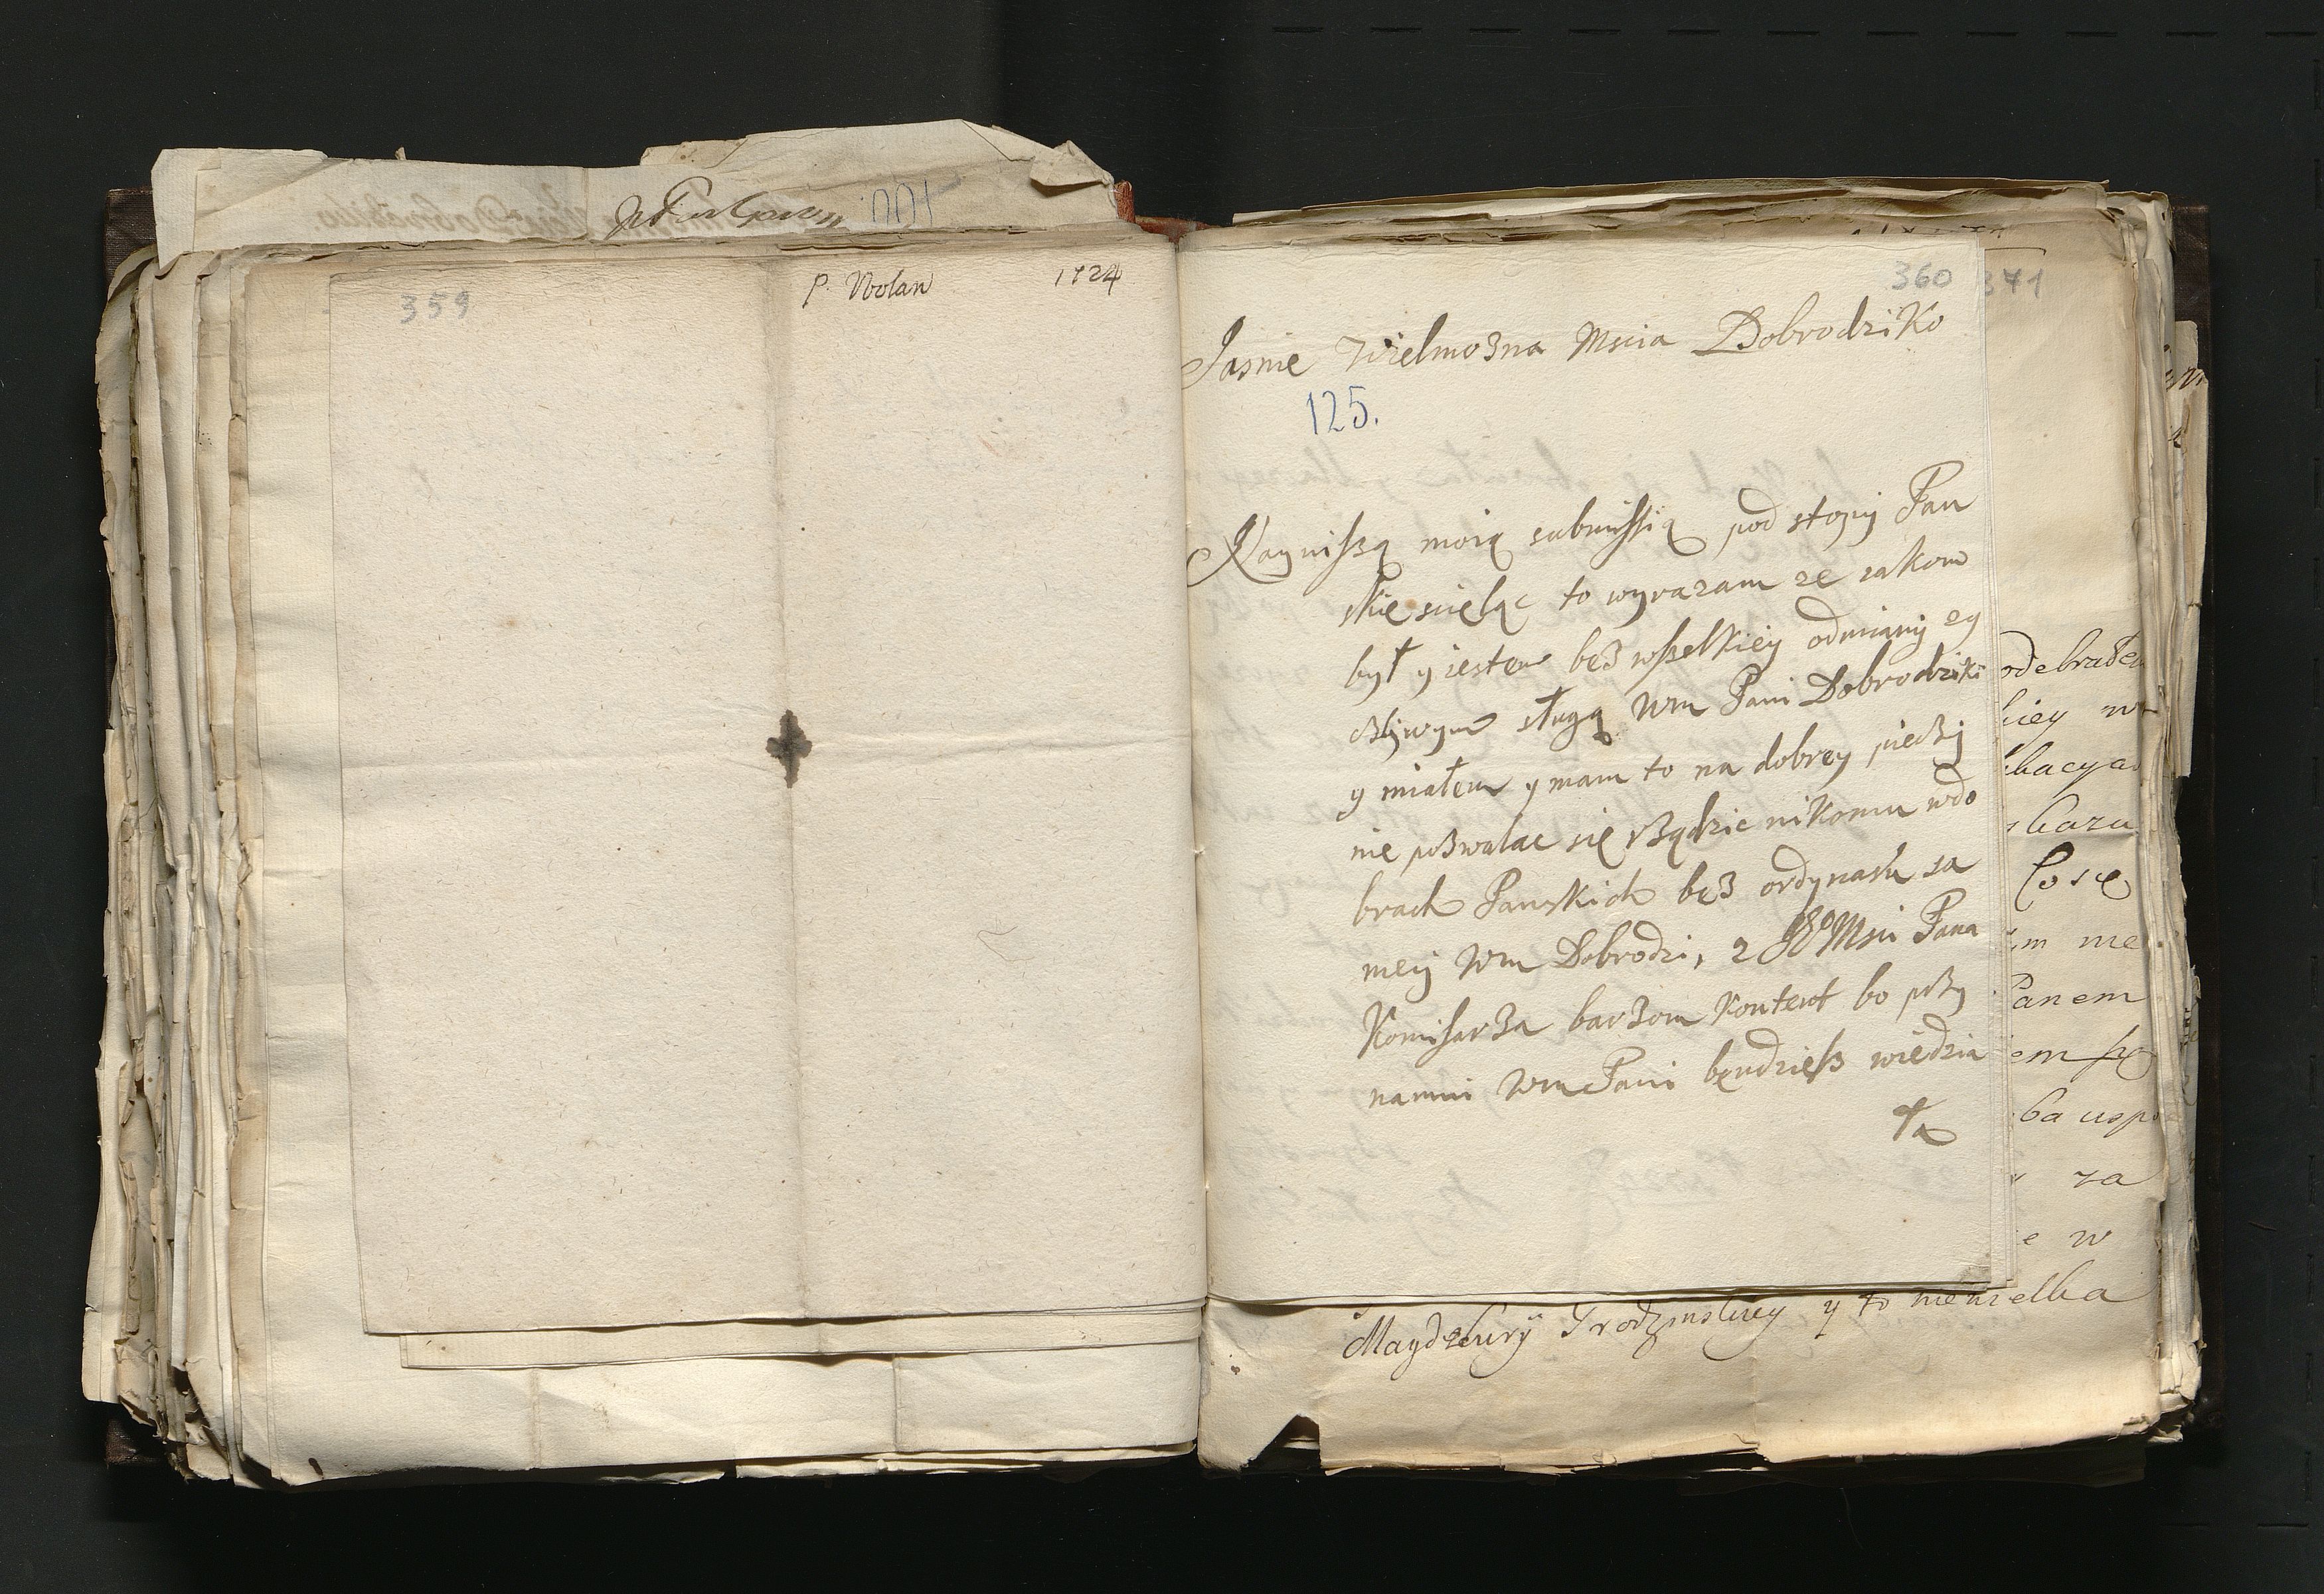 359
P. Wolan 1724
360
371
Jasnie Wielmożna Mscia Dobrodziko
125.
Nayniszą moię submissią pod stopy Pan
skie scieląc to wyrazam ze iakom
był y iestem beż wszelkiey odmiany zy
cżliwym sługą Wm Pani Dobrodziki
y miałem y mam to na dobrey pieczy
nie pożwalac się rżądzic nikomu wdo
brach Panskich beż ordynasu sa
mey Wm Dobrodzi, z JeMsci Pana
Komisarża barżom kontent bo przy
namni Wm Pani będziesz wiedzia
ła
odebrałem
kiey
Co się
nie
Panem
za
w
Magdebury Grodzinskiey y to niewielka